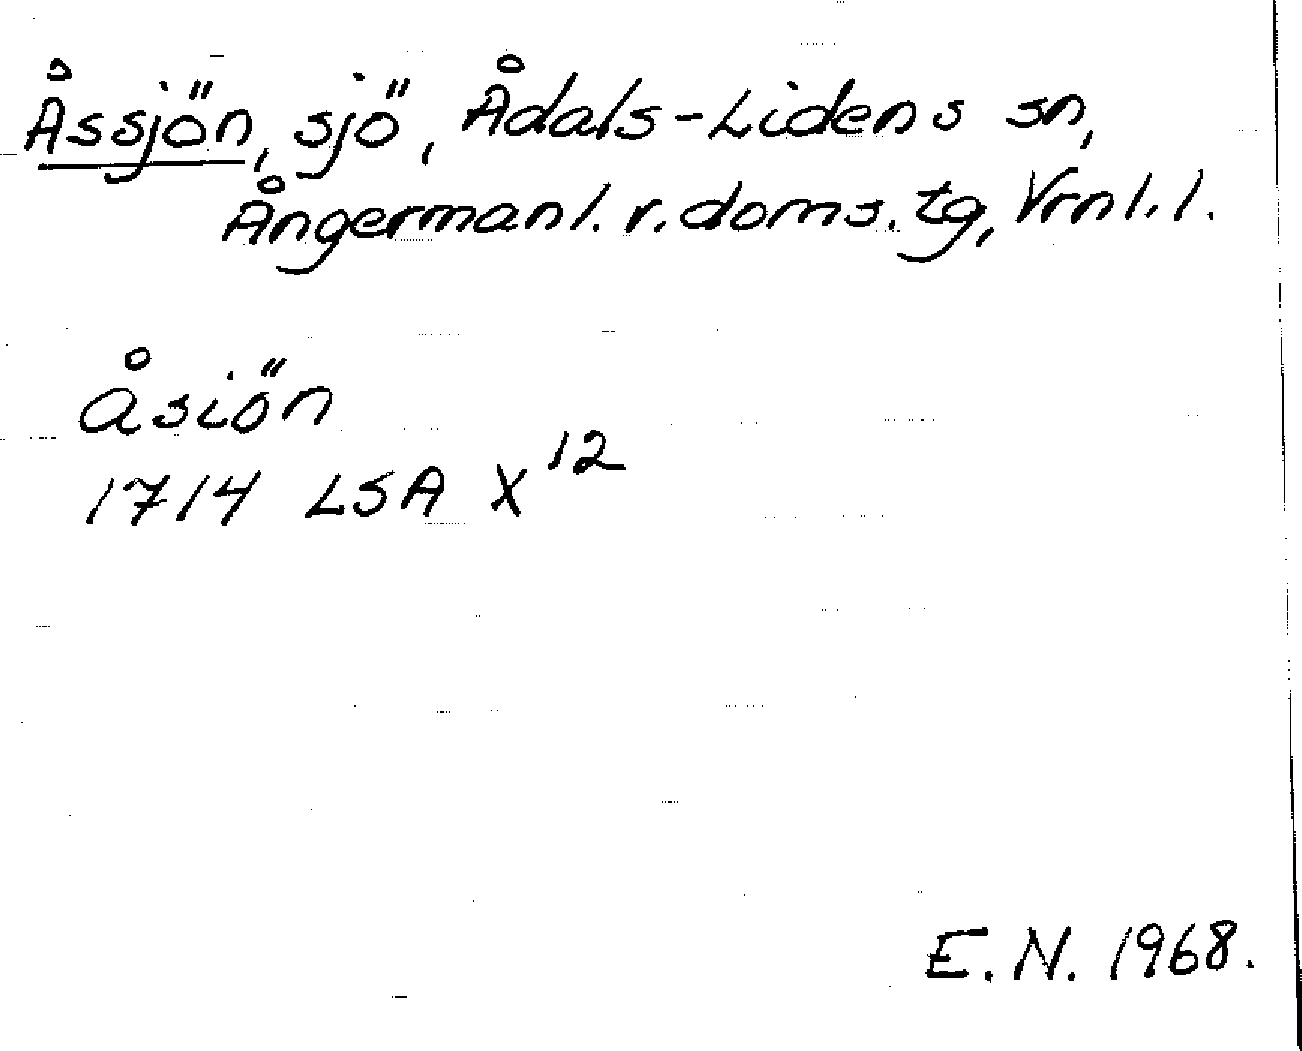 Åssjön, sjö, Ådals-Lidens sn,
Ångermanl. r. doms. tg, Vrnl. l.
åsiön
1714 LSA X 12
E. N. 1968.